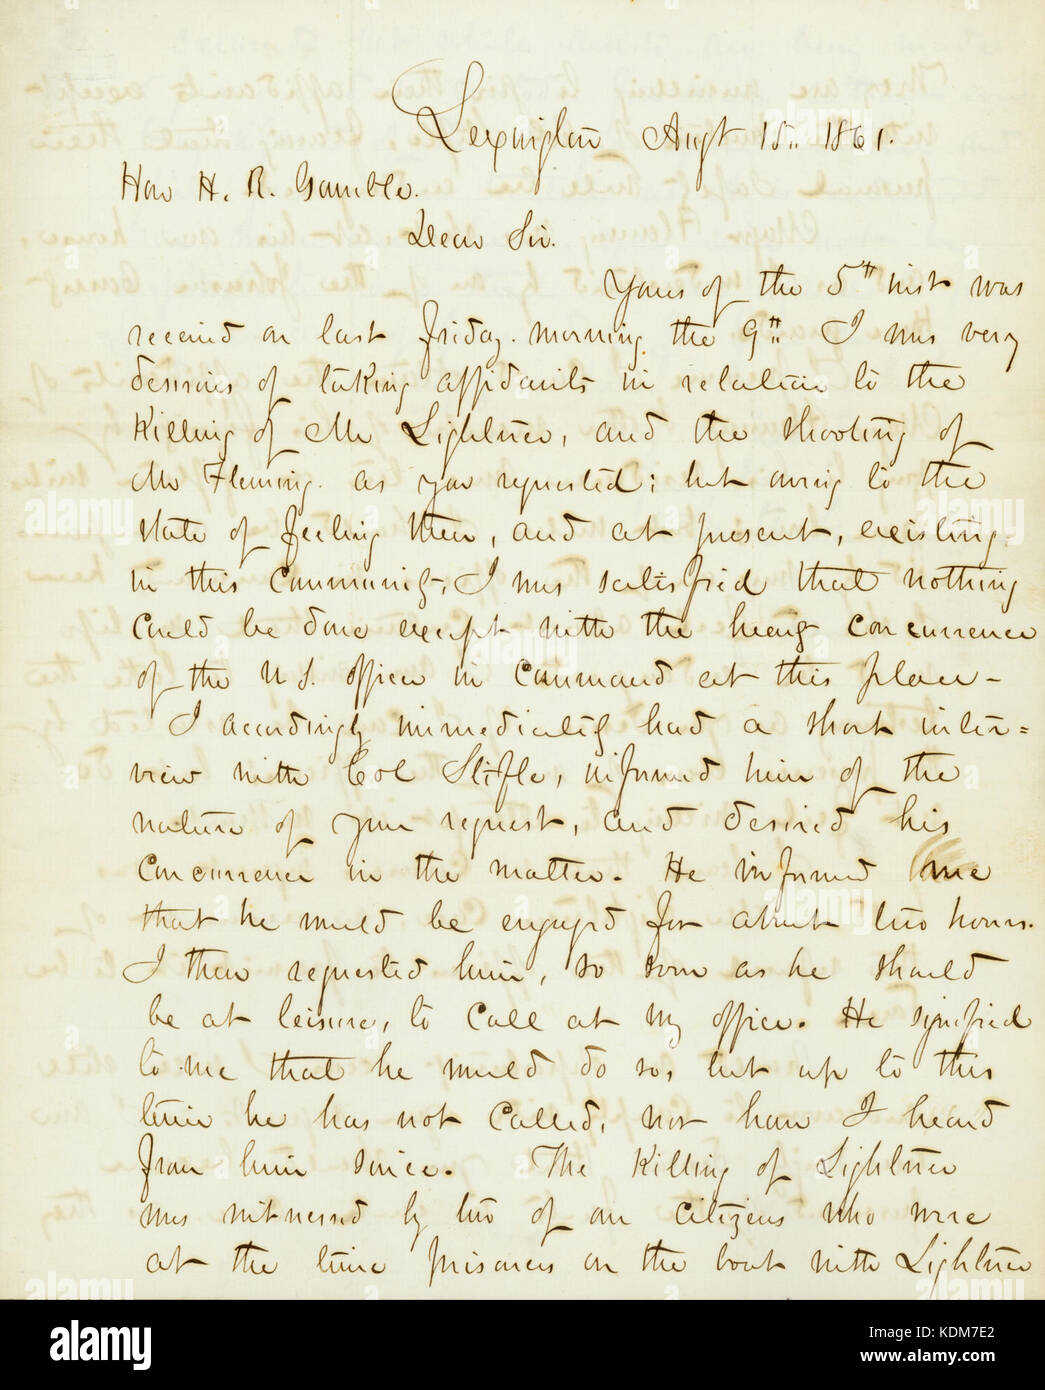 Lexington Augt 15.. 1861.
Hon H. R. Gamble.
Dear Sir.
Yours of the 5th inst was
received on last Friday. morning the 9th. I was very
desirous of taking affidavits in relation to the
Killing of Mr Lightner, and the shooting of
Mr Fleming. as you requested; but owing to the
state of feeling then, and at present, existing
in this Community, I was satisfied that nothing
could be done except with the hearty concurrence
of the U S. officer in command at this place -
I accordingly immediately had a short inter=
view with Col Stifle, informed him of the
nature of your request, and desired his
concurrence in the matter. He informed me
that he would be engaged for about two hours.
I then requested him, so soon as he should
be at leisure, to call at my office. He signified
to me that he would do so, but up to this
time he has not called, nor have I heard
from him since. The Killing of Lightner
was witnessed by two of our citizens who were
at the time prisoners on the boat with Lightner
alamy
alamy
Image ID: KDM7E2
www.alamy.com